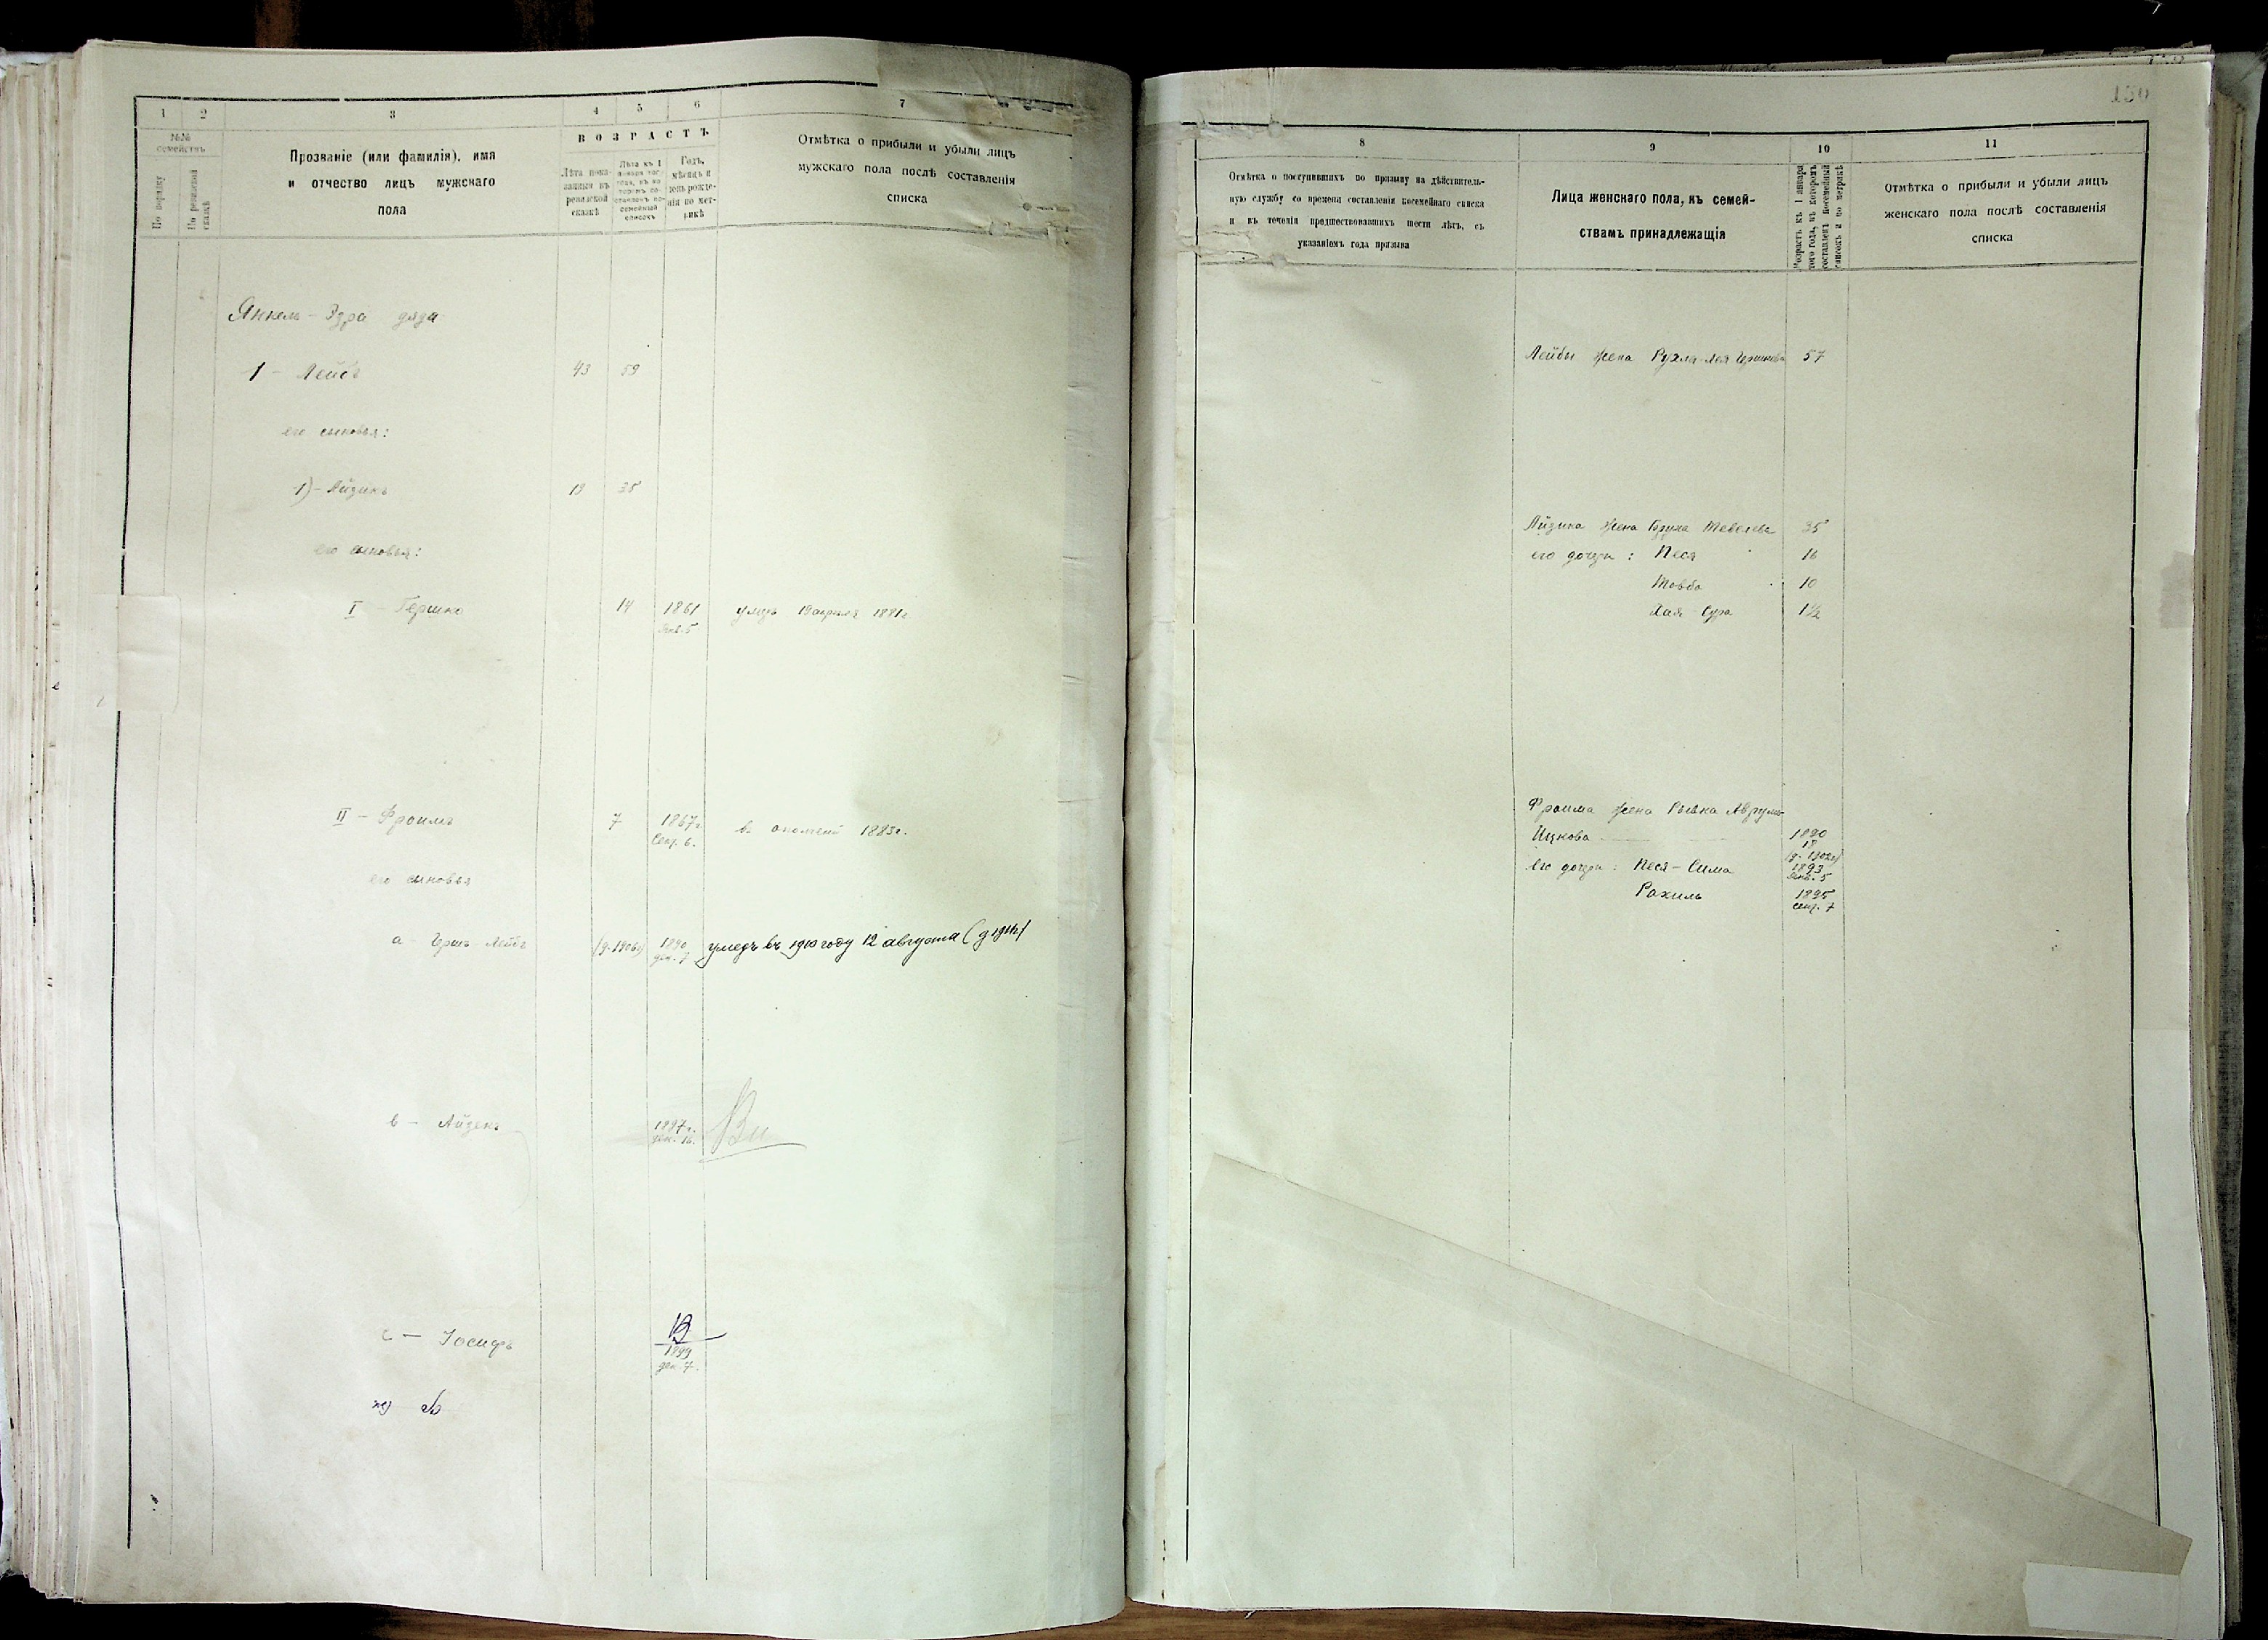 1 2 3 4 5 6 7
№№ семействъ
По порядку
По ревизской сказкѣ
Прозваніе (или фамилія), имя
и отчество лицъ мужскаго
пола
ВОЗРАСТЪ
Лѣта пока-
занныя въ
ревизской
сказкѣ
Лѣта къ 1
января того
года, въ ко-
торомъ со-
ставленъ по-
семейный
списокъ
Годъ,
мѣсяцъ и
день рожде-
нія по мет-
рикѣ
Отмѣтка о прибыли и убыли лицъ
мужскаго пола послѣ составленія
списка
Янкель-Эзра дядя
1 - Лейбъ 43 59
его сыновья:
1) - Айзикъ 19 35
его сыновья:
I - Гершко 14 1861 умеръ 19 апреля 1881г
Янв. 5
II - Фроимъ 7 1867г. въ 1883г.
Сент. 6.
его сыновья
а Лейбъ (д. 1906г) 1890 умеръ въ 1910 году 12 августа (д 1911г)
в - Айзекъ 1897г.
дек. 16.
с - Іосифъ 1899
дек. 7.
150
8 9 10 11
Отмѣтка о поступившихъ по призыву на дѣйствитель-
ную службу со времени составленія посемейнаго списка
и въ теченіи предшествовавшихъ шести лѣтъ, съ
указаніемъ года призыва
Лица женскаго пола, къ семей-
ствамъ принадлежащія
Возрастъ къ 1 января
того года, въ которомъ
составленъ посемейный
списокъ и по метрикѣ
Отмѣтка о прибыли и убыли лицъ
женскаго пола послѣ составленія
списка
Лейбы жена Рухля-Лея 57
Айзика жена Тевелева 35
его дочери: Песя 16
Товба 10
Хая-Сура 1½
Фроима жена Рывка Аврумъ
Ицкова 1890
18
(д. 1902г)
его дочери: Песя-Сима 1893
Янв. 5
Рахиль 1895
Сент. 7